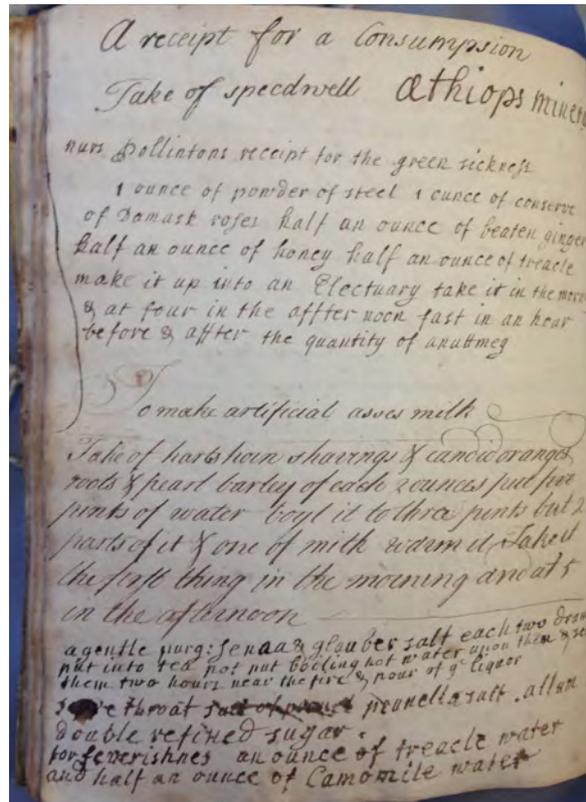 A receipt for a Consumpsion
Take of speedwell Æthiops minera
nurs Pollintons receipt for the green sickness
1 ounce of powder of steel 1 ounce of conserve
of Damask roses half an ounce of beaten ginger
half an ounce of honey half an ounce of treacle
make it up into an Electuary take it in the morn
& at four in the affter noon fast in an hour
before & affter the quantity of anuttmeg
To make artificial asses milk
Take of hartshorn shavings & candid oranges
roots & pearl barley of each 2 ounces put five
pints of water boyl it to three pints but 2
parts of it & one of milk warm it, Take it
the first thing in the morning and at 5
in the afternoon
a gentle purg: senaa & glauber salt each two dram
put into tea pot put booling hot water upon them & se
them two hours near the fire & pour of ye liquor
throat prunella salt . allam
double refined sugar .
for feverishnes an ounce of treacle water
and half an ounce of Camomile water